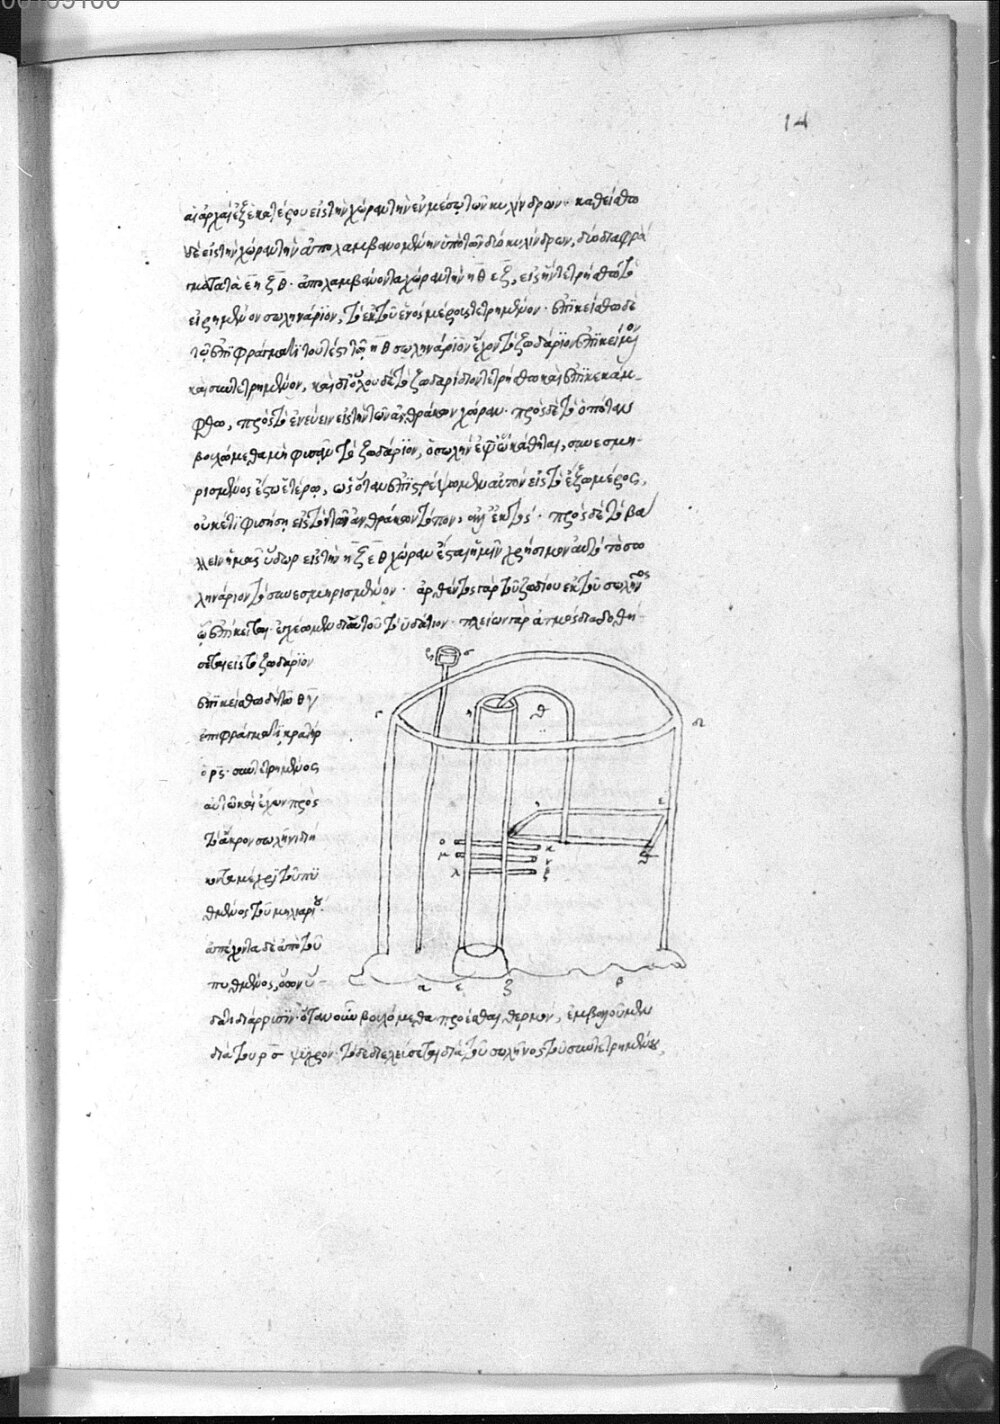 14
αἱ ἀρχαὶ ἐξ ἑκατέρου εἰς τὴν χώραν τὴν ἐν μέσῳ τῶν κυλίνδρων· καθείσθω
δὲ εἰς τὴν χώραν τὴν ἀπολαμβανομένην ὑπὸ τῶν δύο κυλίνδρων, δύο διαφρά
γματα τὰ ε η ζ θ· ἀπολαμβάνοντα χώραν τὴν η θ ε ξ, εἰς ἣν τετρήσθω τὸ
εἰρημένον σωληνάριον, τὸ ἐκ τοῦ ἑνὸς μέρους τετρημένον· ἐπικείσθω δὲ
τῷ ἐπιφράγματι τουτέστι τῷ η θ σωληνάριον ἔχον τὸ ζωδάριον ἐπικείμενον
καὶ συντετρημένον, καὶ δι' ὅλου δὲ τὸ ζωδάριον τετρήσθω καὶ ἐπικεκάμ-
φθω, πρὸς τὸ ἐννεύειν εἰς τὴν τῶν ἀνθράκων χώραν· πρὸς δὲ τὸ ὁπόταν
βουλώμεθα μὴ φυσᾶν τὸ ζωδάριον, ὁ σωλὴν ἐφ' ᾧ κάθηται, συνεσμη-
ρισμένος ἔστω ἑτέρῳ, ὡς ὅταν ἐπιστρέψωμεν αὐτὸν εἰς τὸ ἔξω μέρος,
οὐκέτι φυσήσῃ εἰς τὸν τῶν ἀνθράκων τόπον, ἀλλ' ἐκτός· πρὸς δὲ τὸ βα
λεῖν ἡμᾶς ὕδωρ εἰς τὴν η ξ ε θ χώραν ἔσται ἡμῖν χρήσιμον αὐτὸ τὸ σω
ληνάριον τὸ συνεσμηρισμένον· ἀρθέντος γὰρ τοῦ ζωδίου ἐκ τοῦ σωλῆνος
ᾧ ἐπίκειται ἐγχέωμεν διὰ αὐτοῦ τὸ ὑδάτιον· πλείων γὰρ ἀτμὸς διαδοθή-
σεται εἰς τὸ ζωδάριον
ἐπικείσθω δὴ τῷ θ γ
ἐπιφράγματι κρατὴρ
ὁ ρς· συντετρημένος
αὐτῷ καὶ ἔχων πρὸς
τὸ ἄκρον σωλῆνα
μέχρι τοῦ πυ
θμένος τοῦ μιλιαρίου
ἀπέχοντα δὲ ἀπὸ τοῦ
πυθμένος, ὅσον ὕ-
δατι διάρρυσιν· ὅταν οὖν βουλώμεθα προέσθαι θερμόν, ἐμβαλοῦμεν
διὰ τοῦ ρ σ ψυχρόν· τὸ δὲ διελεύσεται διὰ τοῦ σωλῆνος τοῦ συντετρημένου,
ς σ
γ η θ δ
ε
ο κ
μ ν
λ ξ
α ε ξ β